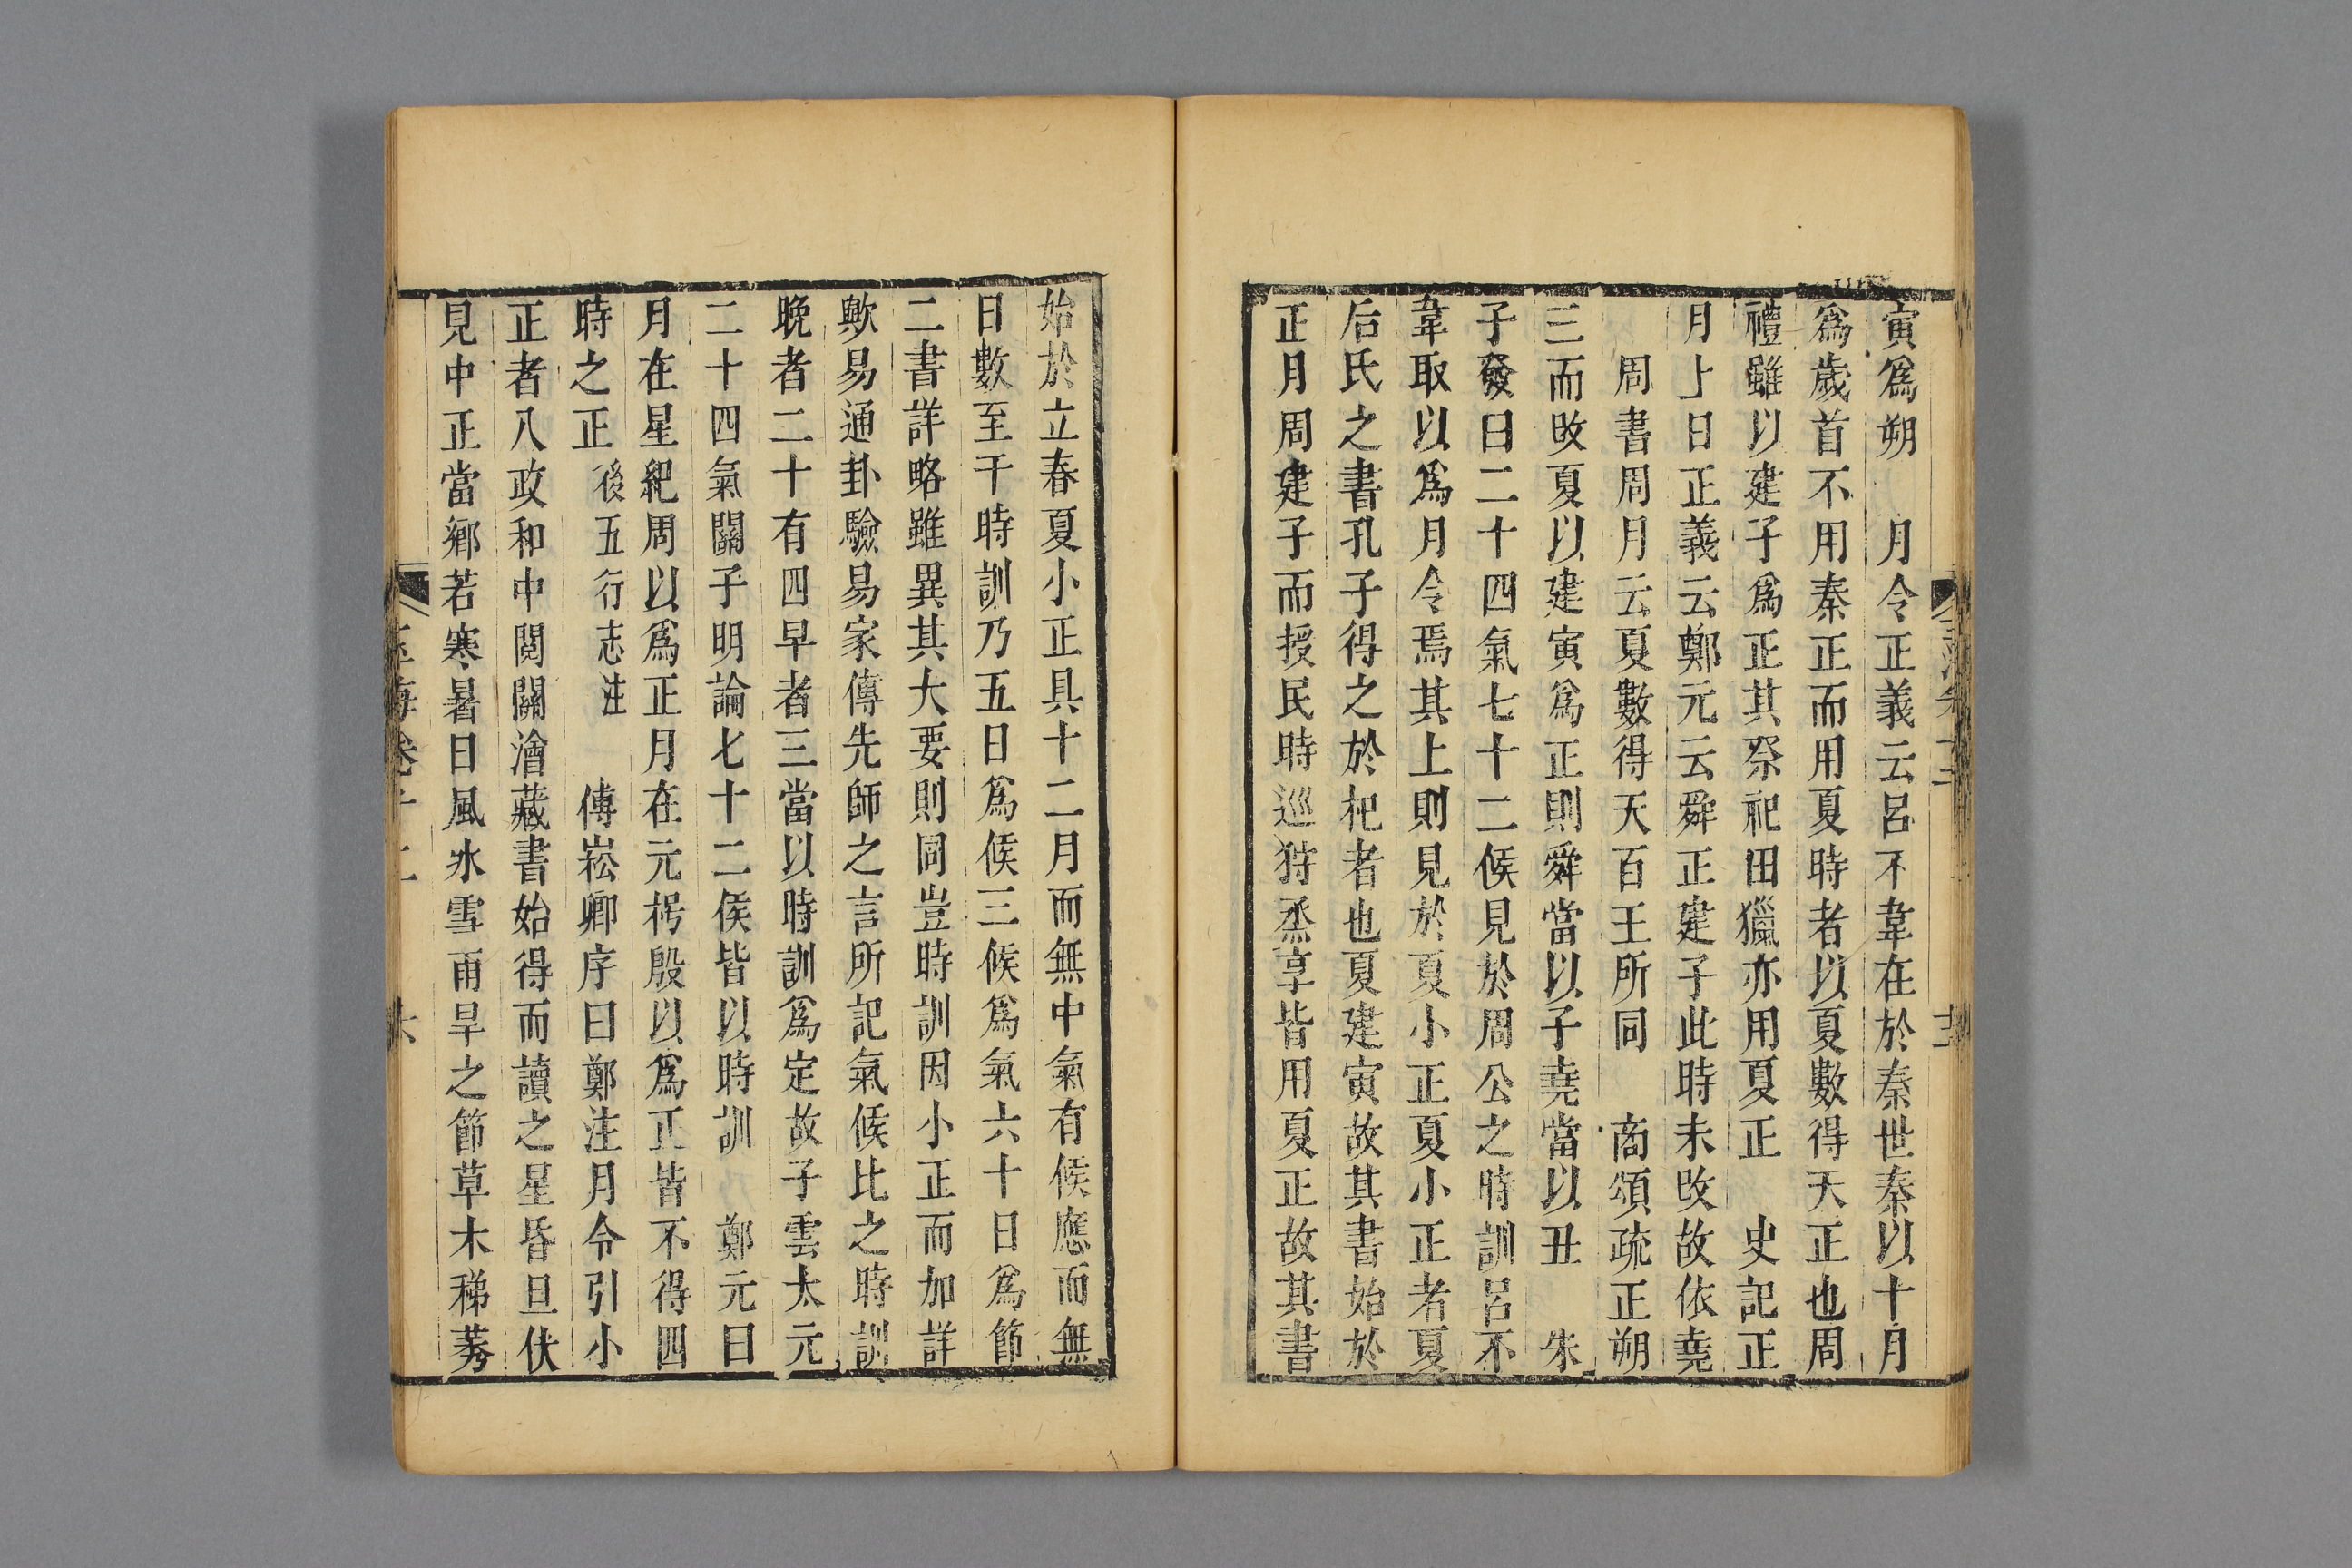 寅爲朔　月令正義云呂不韋在於秦世秦以十月
爲歲首不用秦正而用夏時者以夏數得天正也周
禮雖以建子爲正其祭祀田獵亦用夏正　史記正
月上日正義云鄭元云舜正建子此時未改故依堯
周書周月云夏數得天百王所同　商頌疏正朔
三而改夏以建寅爲正則舜當以子堯當以丑　朱
子發曰二十四氣七十二候見於周公之時訓呂不
韋取以爲月令焉其上則見於夏小正夏小正者夏
后氏之書孔子得之於杞者也夏建寅故其書始於
正月周建子而授民時巡狩烝享皆用夏正故其書
始於立春夏小正具十二月而無中氣有候應而無
日數至干時訓乃五日爲候三候爲氣六十日爲節
二書詳略雖異其大要則同豈時訓因小正而加詳
歟易通卦驗易家傳先師之言所記氣候比之時訓
晚者二十有四早者三當以時訓爲定故子雲太元
二十四氣關子明論七十二候皆以時訓　鄭元曰
月在星紀周以爲正月在元枵殷以爲正皆不得四
時之正後五行志注　傅崧卿序曰鄭注月令引小
正者八政和中閱關澮藏書始得而讀之星昏旦伏
見中正當鄉若寒暑日風氷雪雨旱之節草木稊莠
玉海卷十二